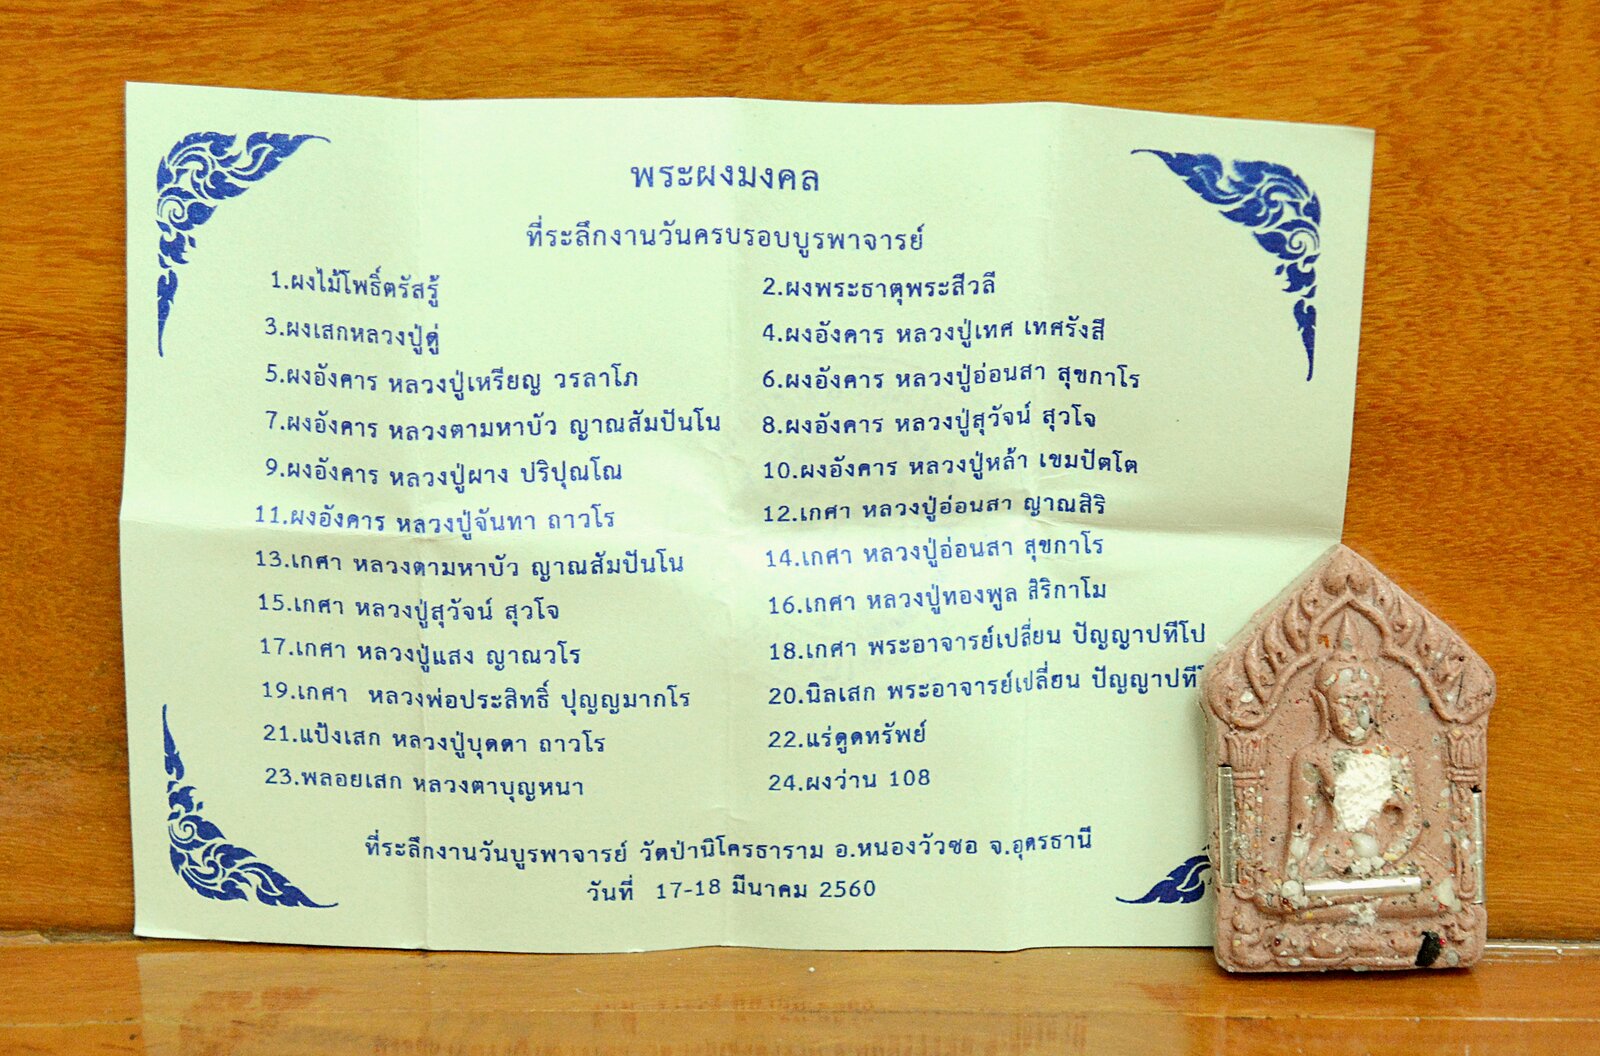 พระผงมงคล
ที่ระลึกงานวันครบรอบบูรพาจารย์
1.ผงไม้โพธิ์ตรัสรู้
2.ผงพระธาตุพระสีวลี
3.ผงเสกหลวงปู่ดู่
4.ผงอังคาร หลวงปู่เทศ เทศรังสี
5.ผงอังคาร หลวงปู่เหรียญ วรลาโภ
6.ผงอังคาร หลวงปู่อ่อนสา สุขกาโร
7.ผงอังคาร หลวงตามหาบัว ญาณสัมปันโน
8.ผงอังคาร หลวงปู่สุวัจน์ สุวโจ
9.ผงอังคาร หลวงปู่ผาง ปริปุณโณ
10.ผงอังคาร หลวงปู่หล้า เขมปัตโต
11.ผงอังคาร หลวงปู่จันทา ถาวโร
12.เกศา หลวงปู่อ่อนสา ญาณสิริ
13.เกศา หลวงตามหาบัว ญาณสัมปันโน
14.เกศา หลวงปู่อ่อนสา สุขกาโร
15.เกศา หลวงปู่สุวัจน์ สุวโจ
16.เกศา หลวงปู่ทองพูล สิริกาโม
17.เกศา หลวงปู่แสง ญาณวโร
18.เกศา พระอาจารย์เปลี่ยน ปัญญาปทีโป
19.เกศา หลวงพ่อประสิทธิ์ ปุญญมากโร
20.นิลเสก พระอาจารย์เปลี่ยน
21.แป้งเสก หลวงปู่บุดดา ถาวโร
22.แร่ดูดทรัพย์
23.พลอยเสก หลวงตาบุญหนา
24.ผงว่าน 108
ที่ระลึกงานวันบูรพาจารย์ วัดป่านิโครธาราม อ.หนองวัวซอ จ.อุดรธานี
วันที่ 17-18 มีนาคม 2560